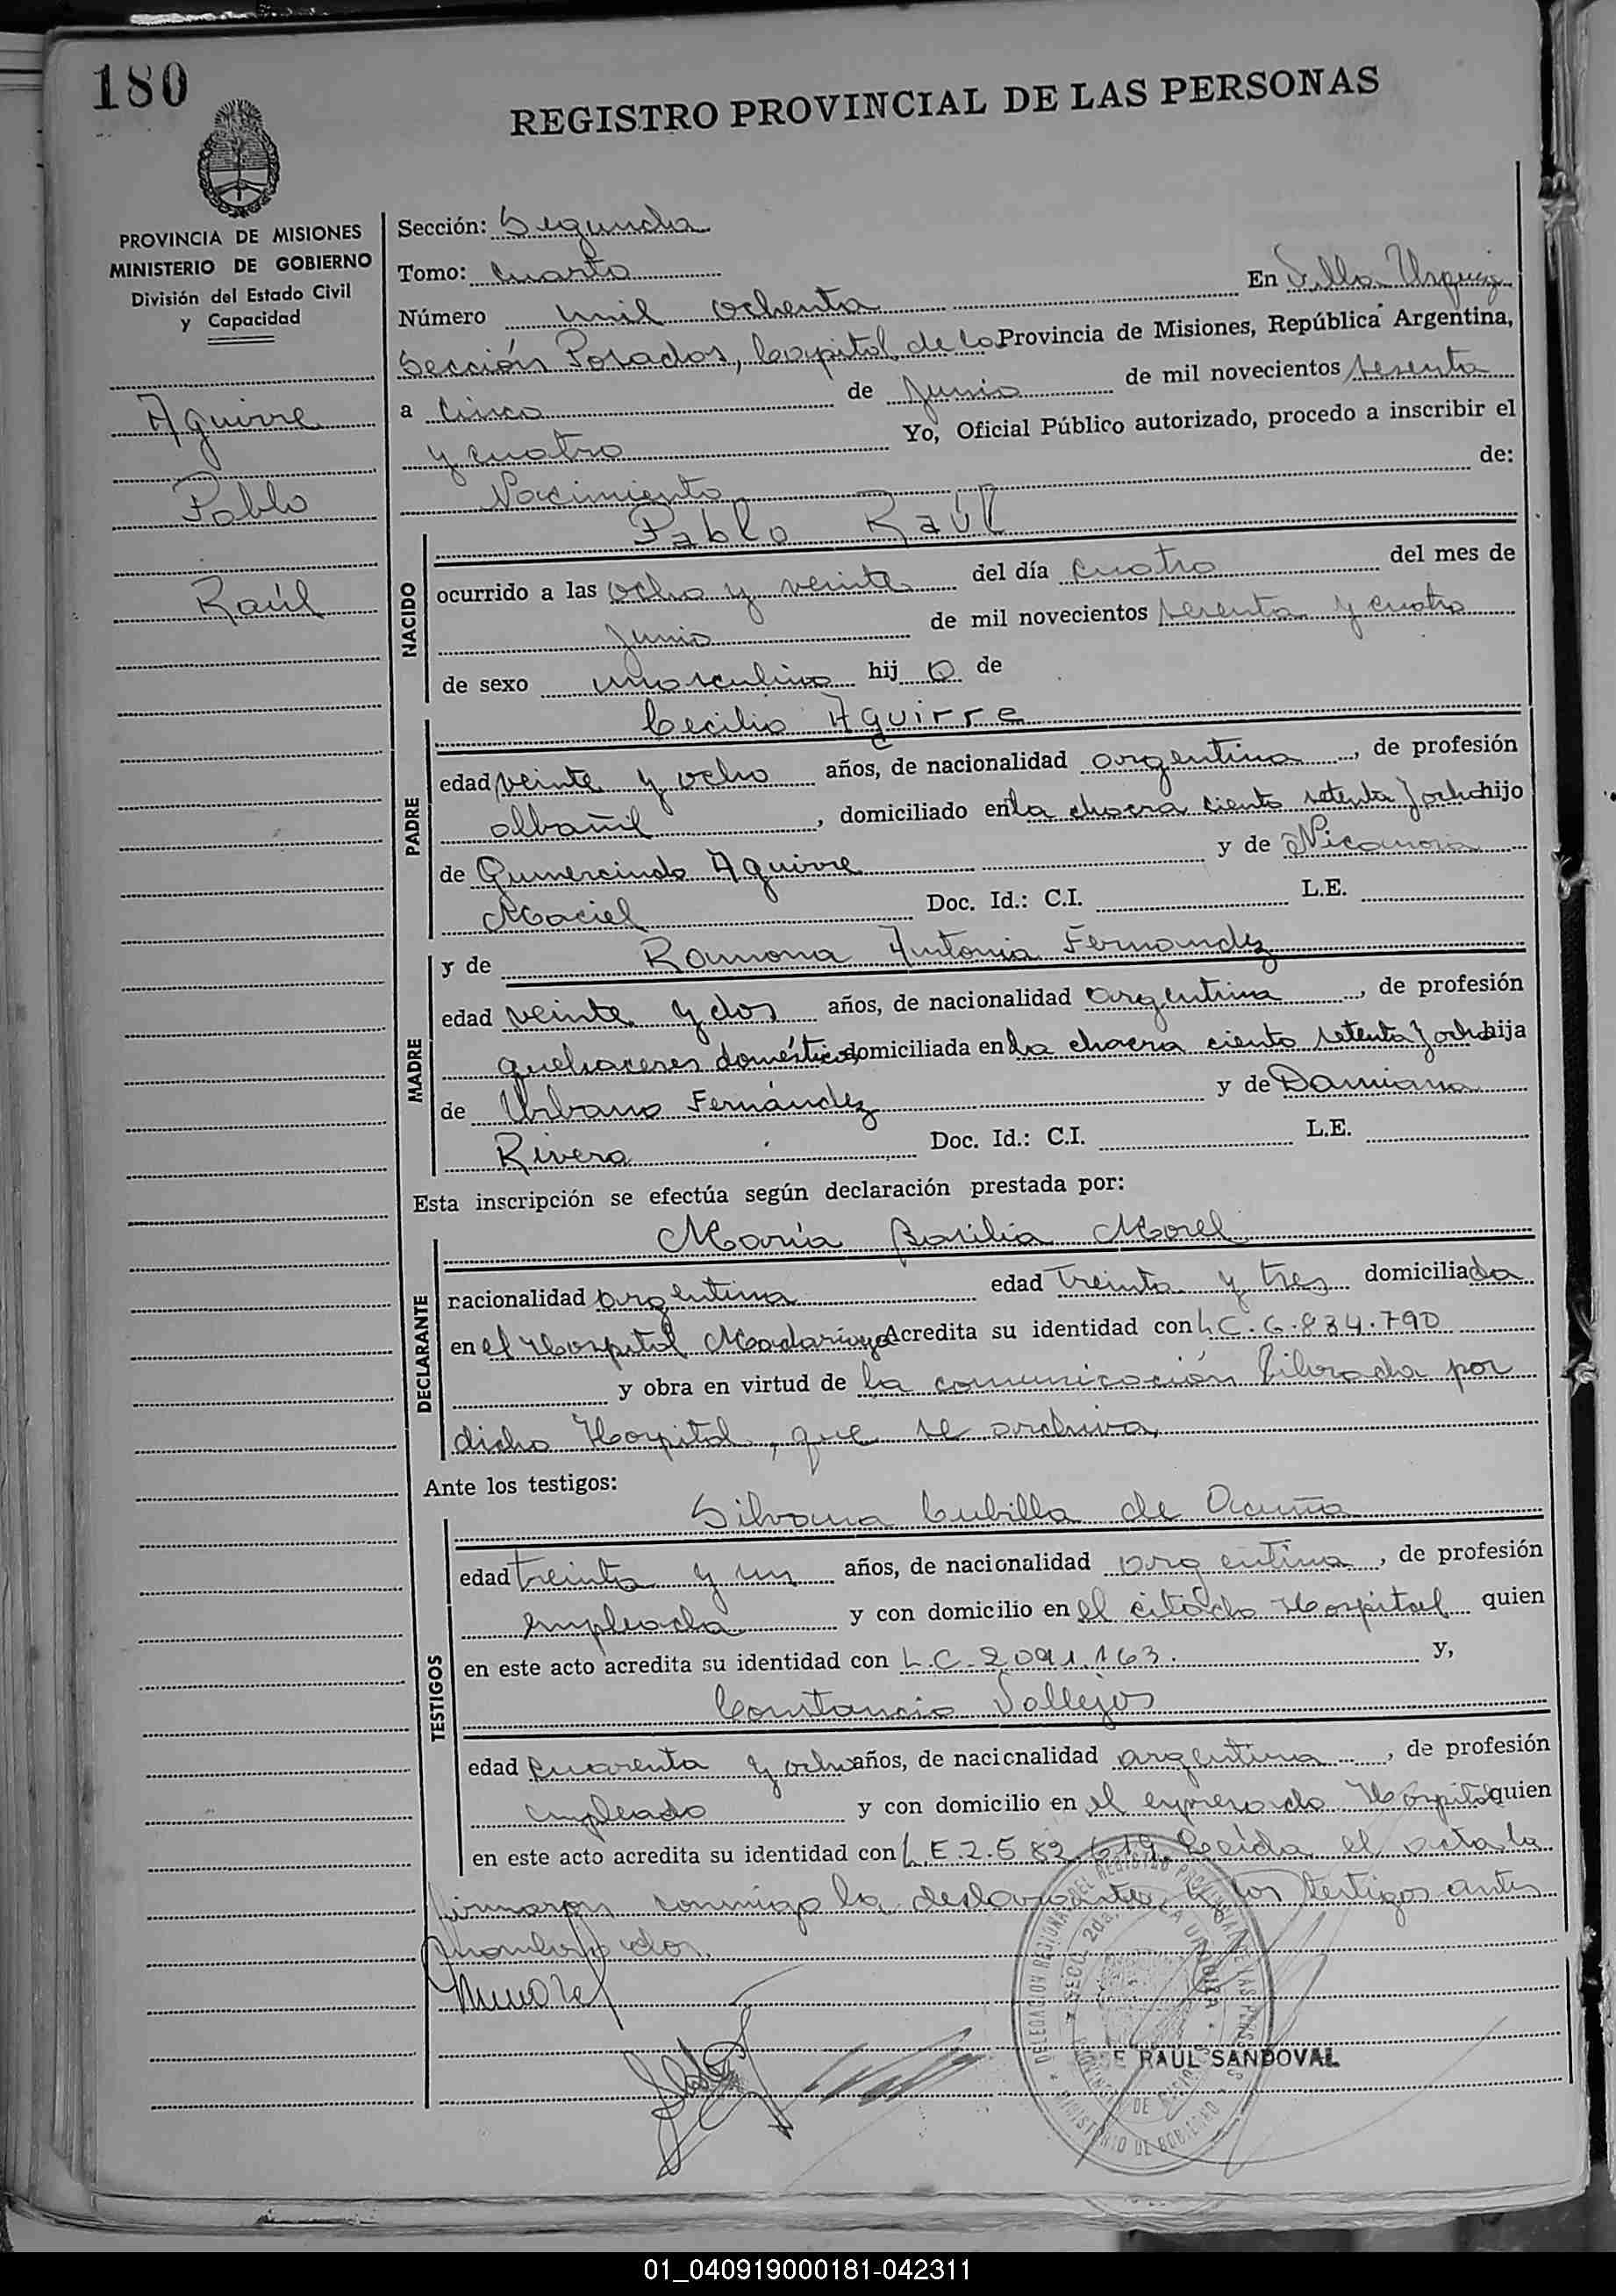 180
REGISTRO PROVINCIAL DE LAS PERSONAS
PROVINCIA DE MISIONES
MINISTERIO DE GOBIERNO
División del Estado Civil
y Capacidad
Aguirre
Pablo
Raúl
Sección: Segunda
Tomo: Cuarto
Número mil ochenta En Villa Urquiza
Sección Posadas, Capital de la Provincia de Misiones, República Argentina,
a Cinco de Junio de mil novecientos sesenta
y cuatro Yo, Oficial Público autorizado, procedo a inscribir el
Nacimiento de:
NACIDO
Pablo Raúl
ocurrido a las ocho y veinte del día cuatro del mes de
Junio de mil novecientos sesenta y cuatro
de sexo masculino hij o de
PADRE
Cecilio Aguirre
edad veinte y ocho años, de nacionalidad argentina, de profesión
albañil, domiciliado en la chacra ciento setenta y ocho hijo
de Gumercindo Aguirre y de Nicanora
Maciel Doc. Id.: C.I. L.E.
MADRE
y de Ramona Antonia Fernandez
edad veinte y dos años, de nacionalidad argentina, de profesión
quehaceres domésticos, domiciliada en la chacra ciento setenta y ocho hija
de Urbano Fernández y de Damiana
Rivero Doc. Id.: C.I. L.E.
Esta inscripción se efectúa según declaración prestada por:
DECLARANTE
María Basilia Morel
nacionalidad argentina edad treinta y tres domiciliada
en el Hospital Madariaga Acredita su identidad con L.C. 6.834.790
y obra en virtud de la comunicación librada por
dicho Hospital, que se archiva,
Ante los testigos:
TESTIGOS
Silvana Cubilla de Acuña
edad treinta y un años, de nacionalidad argentina, de profesión
empleada y con domicilio en el citado Hospital quien
en este acto acredita su identidad con L.C. 2091.163. y,
Constancio Vallejos
edad cuarenta y ocho años, de nacionalidad argentina, de profesión
empleado y con domicilio en el expresado Hospital quien
en este acto acredita su identidad con L.E. 2.582.619. Leída el acta la
firmaron conmigo la declarante y los testigos antes
nombrados.
RAUL SANDOVAL
01_040919000181-042311